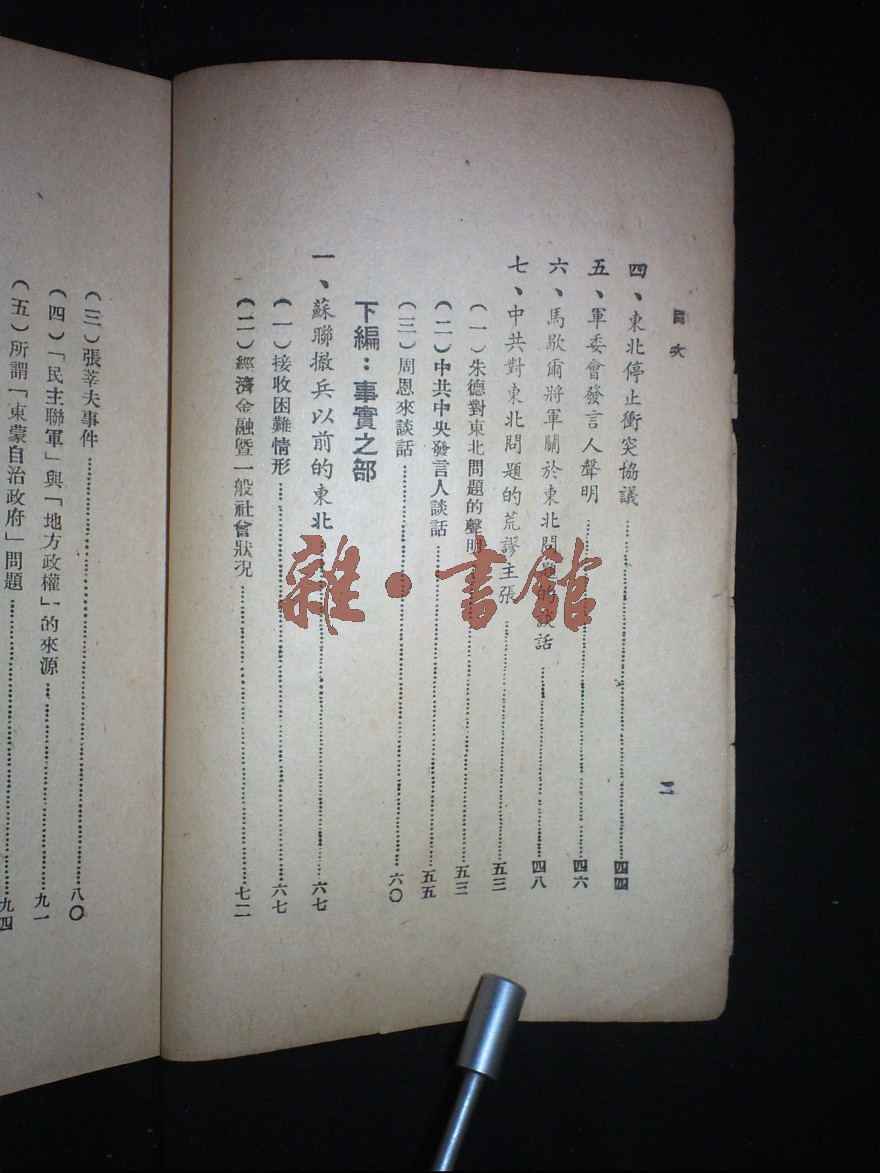 目次
二
四、東北停止衝突協議……四四
五、軍委會發言人聲明……四六
六、馬歇爾將軍關於東北問題的談話……四八
七、中共對東北問題的荒謬主張……五三
（一）朱德對東北問題的聲明……五三
（二）中共中央發言人談話……五五
（三）周恩來談話……六〇
下編：事實之部
一、蘇聯撤兵以前的東北……六七
（一）接收困難情形……六七
（二）經濟金融暨一般社會狀况……七二
（三）張莘夫事件……八〇
（四）「民主聯軍」與「地方政權」的來源……九一
（五）所謂「東蒙自治政府」問題……九四
雜·書館